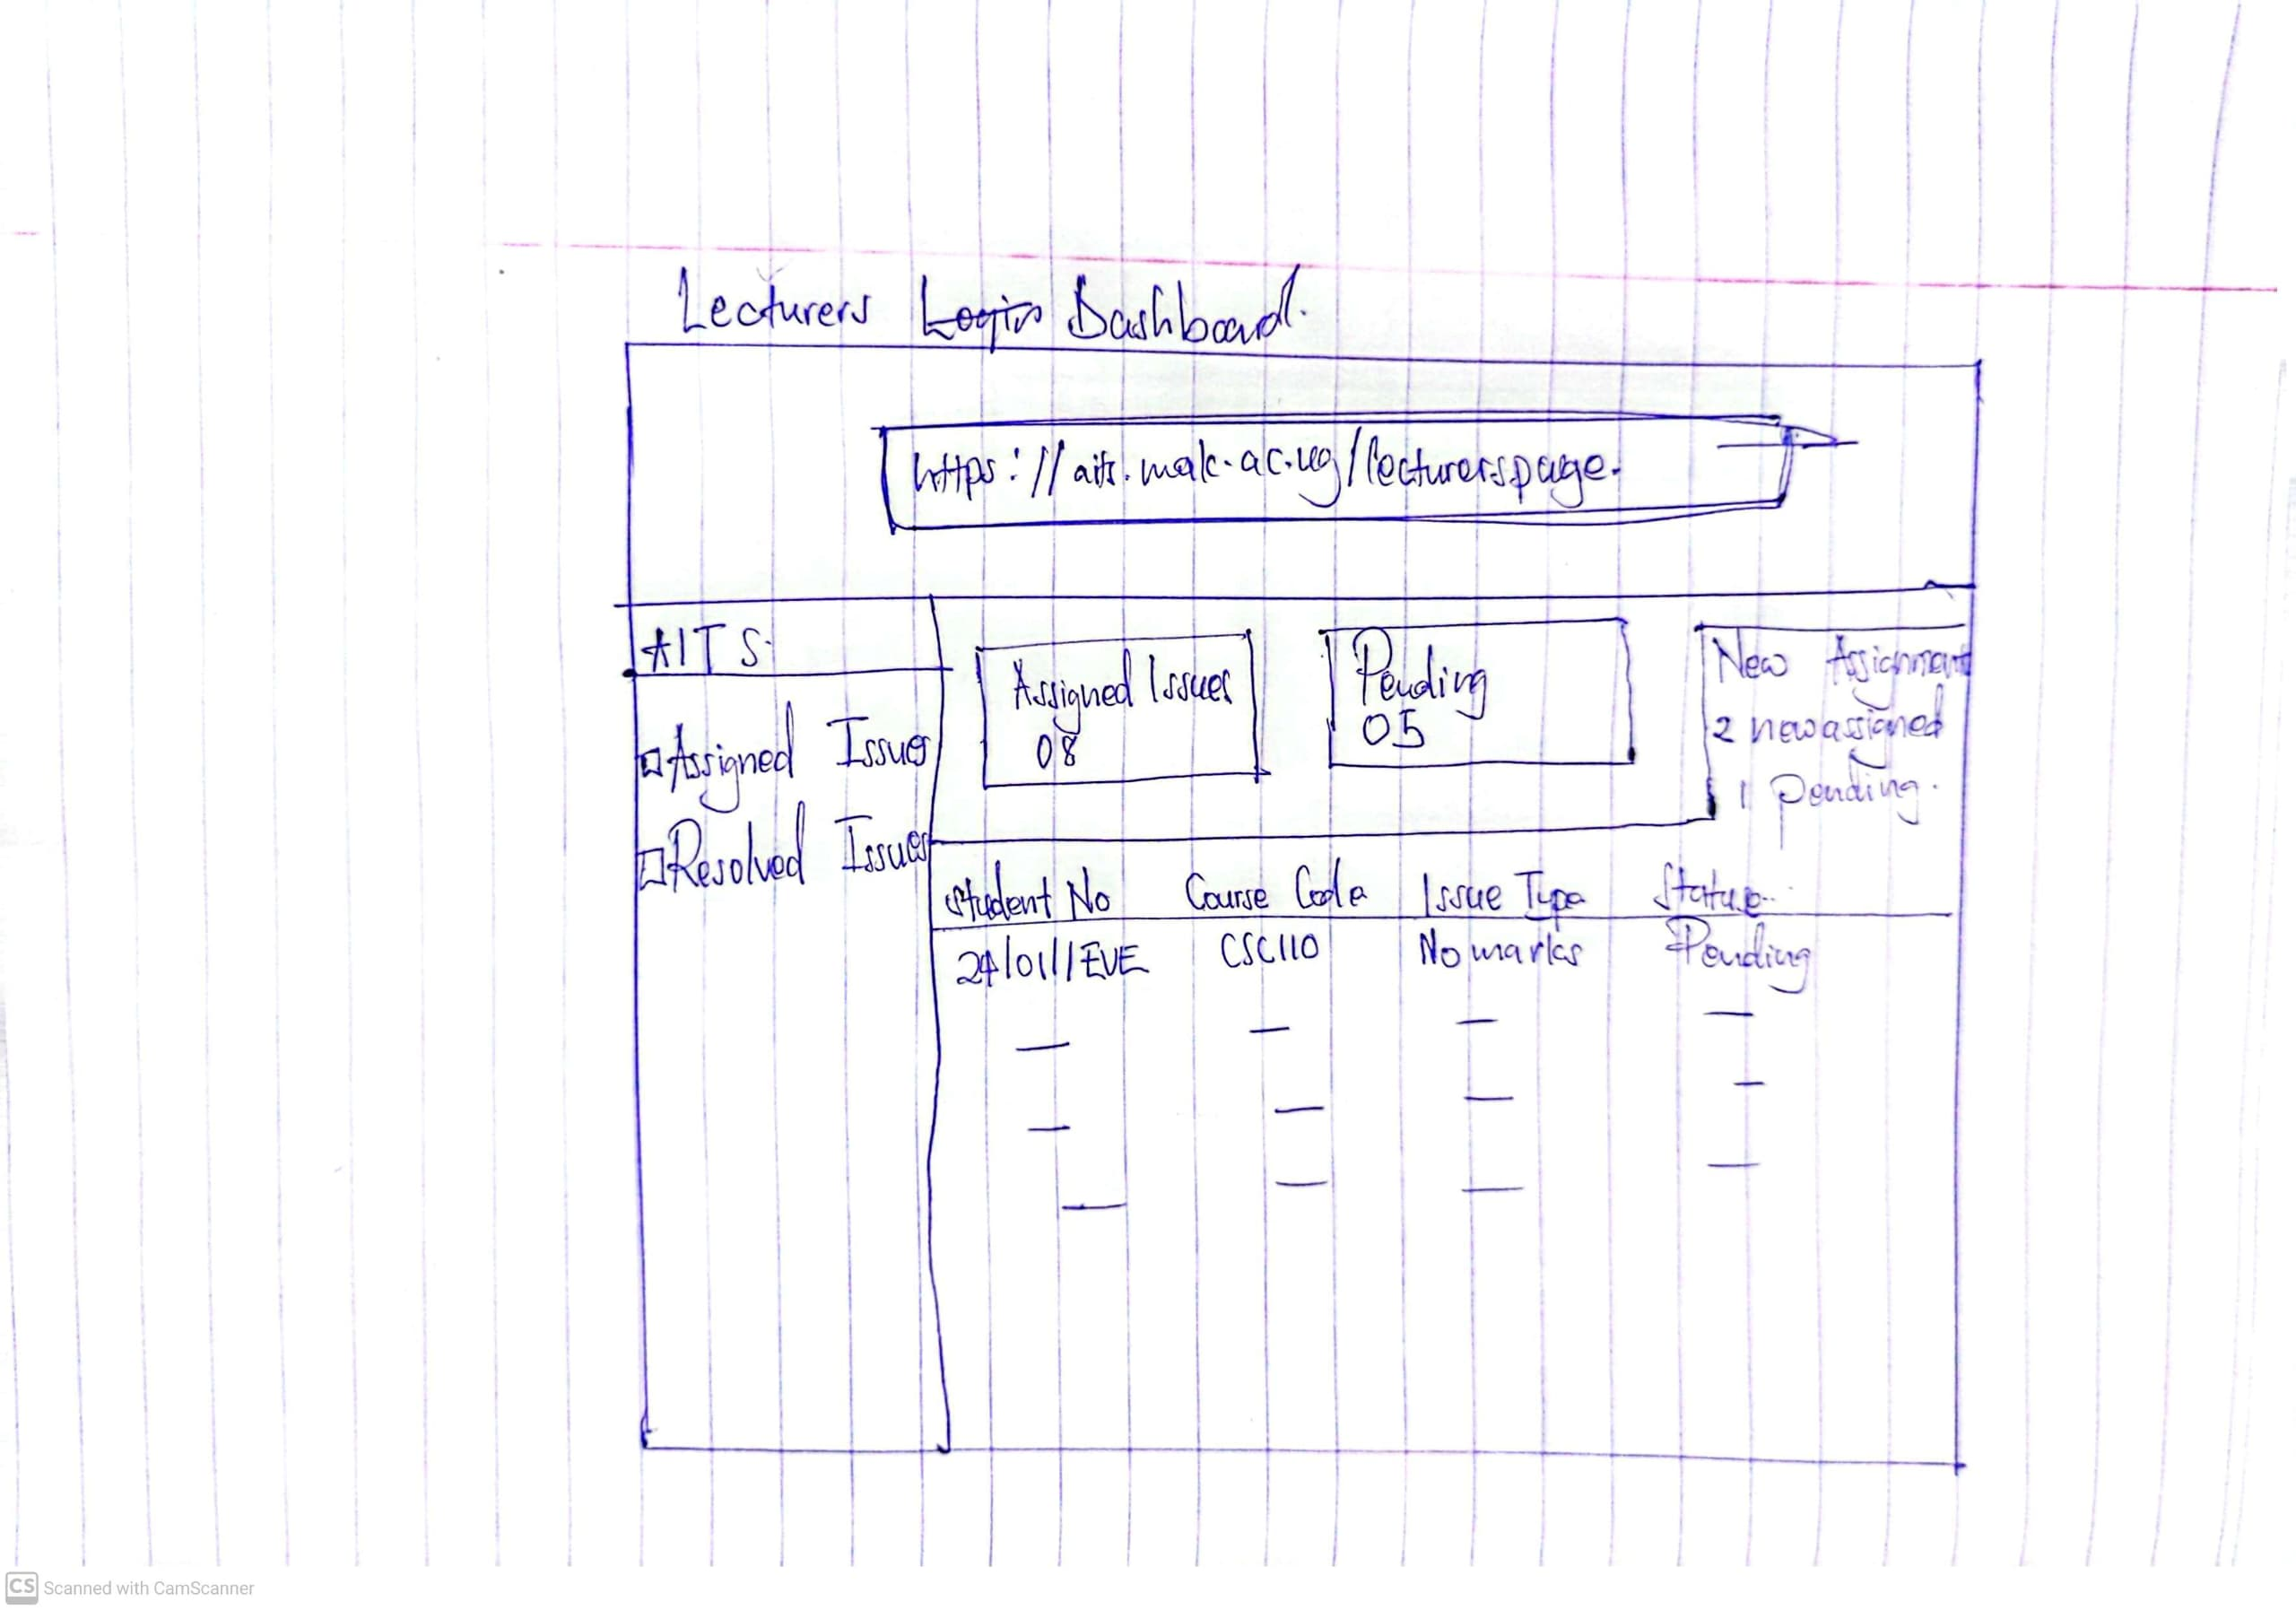 Lecturers Login Dashboard.
https://aits.mak.ac.ug/lecturerspage.
AITS.
Assigned Issues
Resolved Issues
Assigned Issues
08
Pending
05
New Assignment
2 new assigned
1 pending.
Student No Course Code Issue Type Status
24/01//EVE CSC110 No marks Pending
CS Scanned with CamScanner